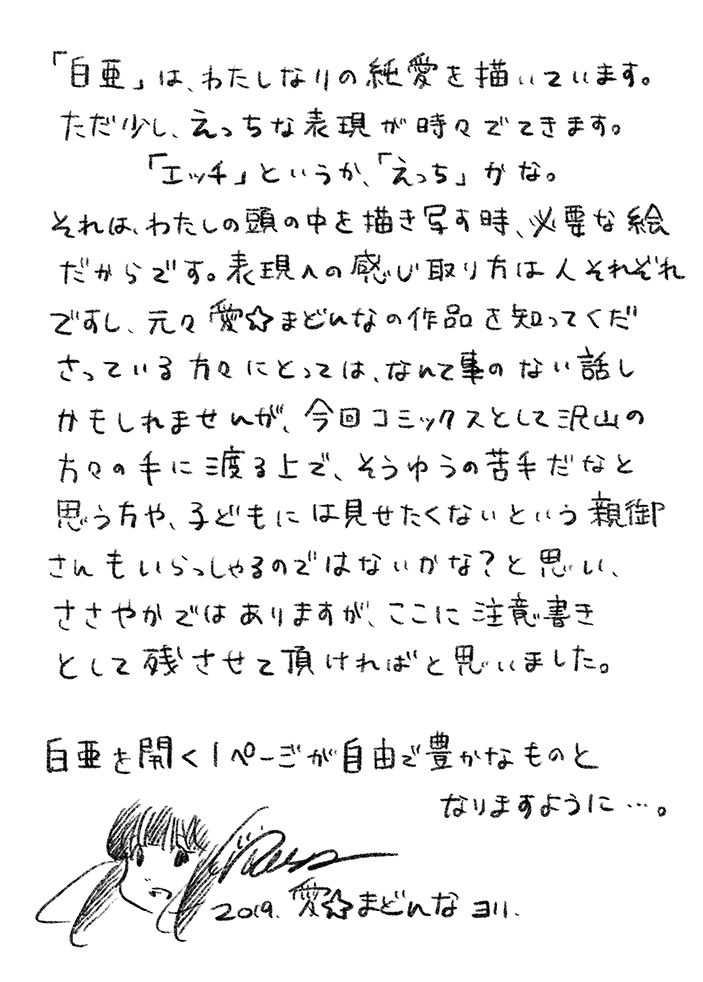 「白亜」は、わたしなりの純愛を描いています。
ただ少し、えっちな表現が時々でてきます。
「エッチ」というか、「えっち」かな。
それは、わたしの頭の中を描き写す時、必要な絵
だからです。表現への感じ取り方は人それぞれ
ですし、元々愛☆まどんなの作品を知ってくだ
さっている方々にとっては、なんて事のない話し
かもしれませんが、今回コミックスとして沢山の
方々の手に渡る上で、そうゆうの苦手だなと
思う方や、子どもには見せたくないという親御
さんもいらっしゃるのではないかな?と思い、
ささやかではありますが、ここに注意書き
として残させて頂ければと思いました。
白亜を開く1ページが自由で豊かなものと
なりますように…。
2019. 愛☆まどんなヨリ.